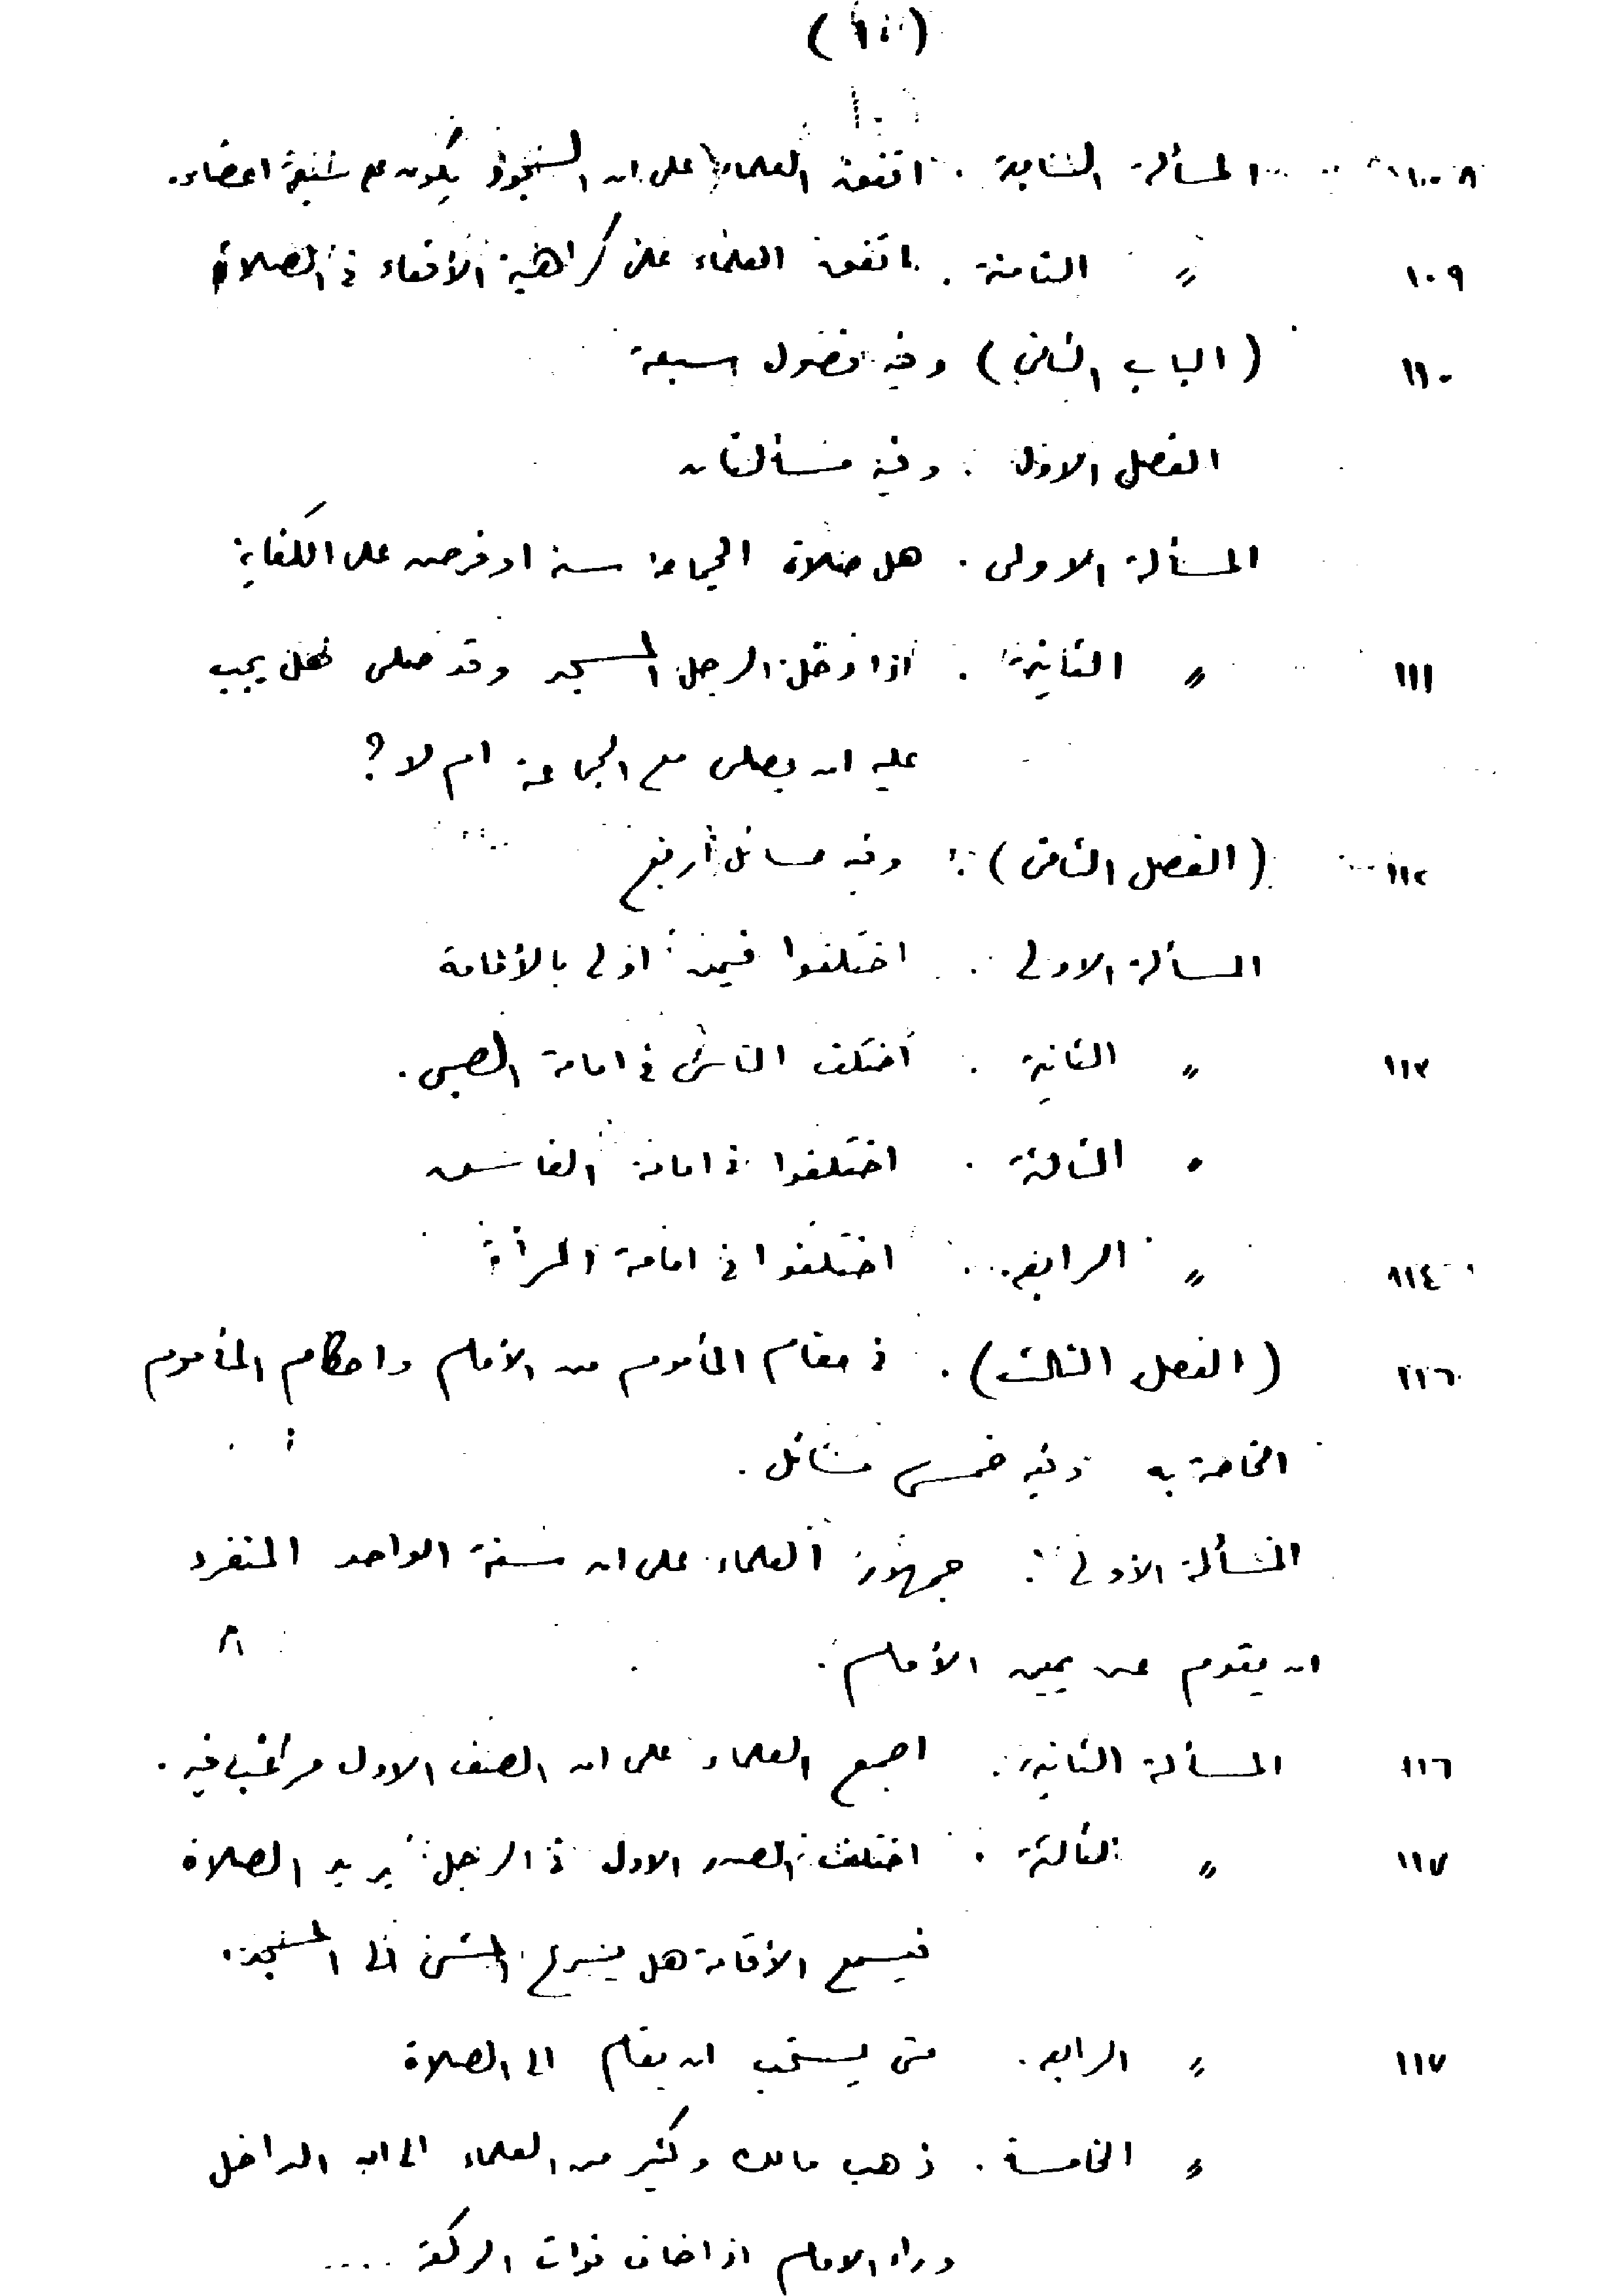 (١٠)
١٠٨ المسألة السابعة . اتفق العلماء على ان السجود يكون على سبعة اعضاء.
١٠٩ 〃 الثامنة . اتفق العلماء على كراهية الأقعاء في الصلاة
١١٠ (الباب الثاني) وفيه فصول سبعة
الفصل الاول . وفيه مسألتان
المسألة الاولى . هل صلاة الجماعة سنة او فرض على الكفاية
١١١ 〃 الثانية . اذا دخل الرجل المسجد وقد صلى فهل يجب
عليه ان يصلى مع الجماعة ام لا ؟
١١٢ (الفصل الثانى) . وفيه مسائل أربع
المسألة الاولى . اختلفوا فيمن أولى بالأمامة
١١٣ 〃 الثانية . أختلف الناس في امامة الصبى .
〃 الثالثة . اختلفوا في امامة الفاسق
١١٤ 〃 الرابعة . اختلفوا في امامة المرأة
١١٦ (الفصل الثالث) . في مقام المأموم من الأمام واحكام المأموم
الخاصة به وفيه خمس مسائل .
المسألة الأولى . جمهور العلماء على ان سنة الواحد المنفرد
ان يقوم عن يمين الأمام .
١١٦ المسألة الثانية . اجمع العلماء على ان الصف الاول مرغب فيه .
١١٧ 〃 الثالثة . اختلف الصدر الاول في الرجل يريد الصلاة
فيسمع الأقامة هل يسرع المشى الى المسجد .
١١٧ 〃 الرابعة . متى يستحب ان يقام الى الصلاة
〃 الخامسة . ذهب مالك وكثير من العلماء الى ان الداخل
وراء الامام اذا خاف فوات الركعة ....